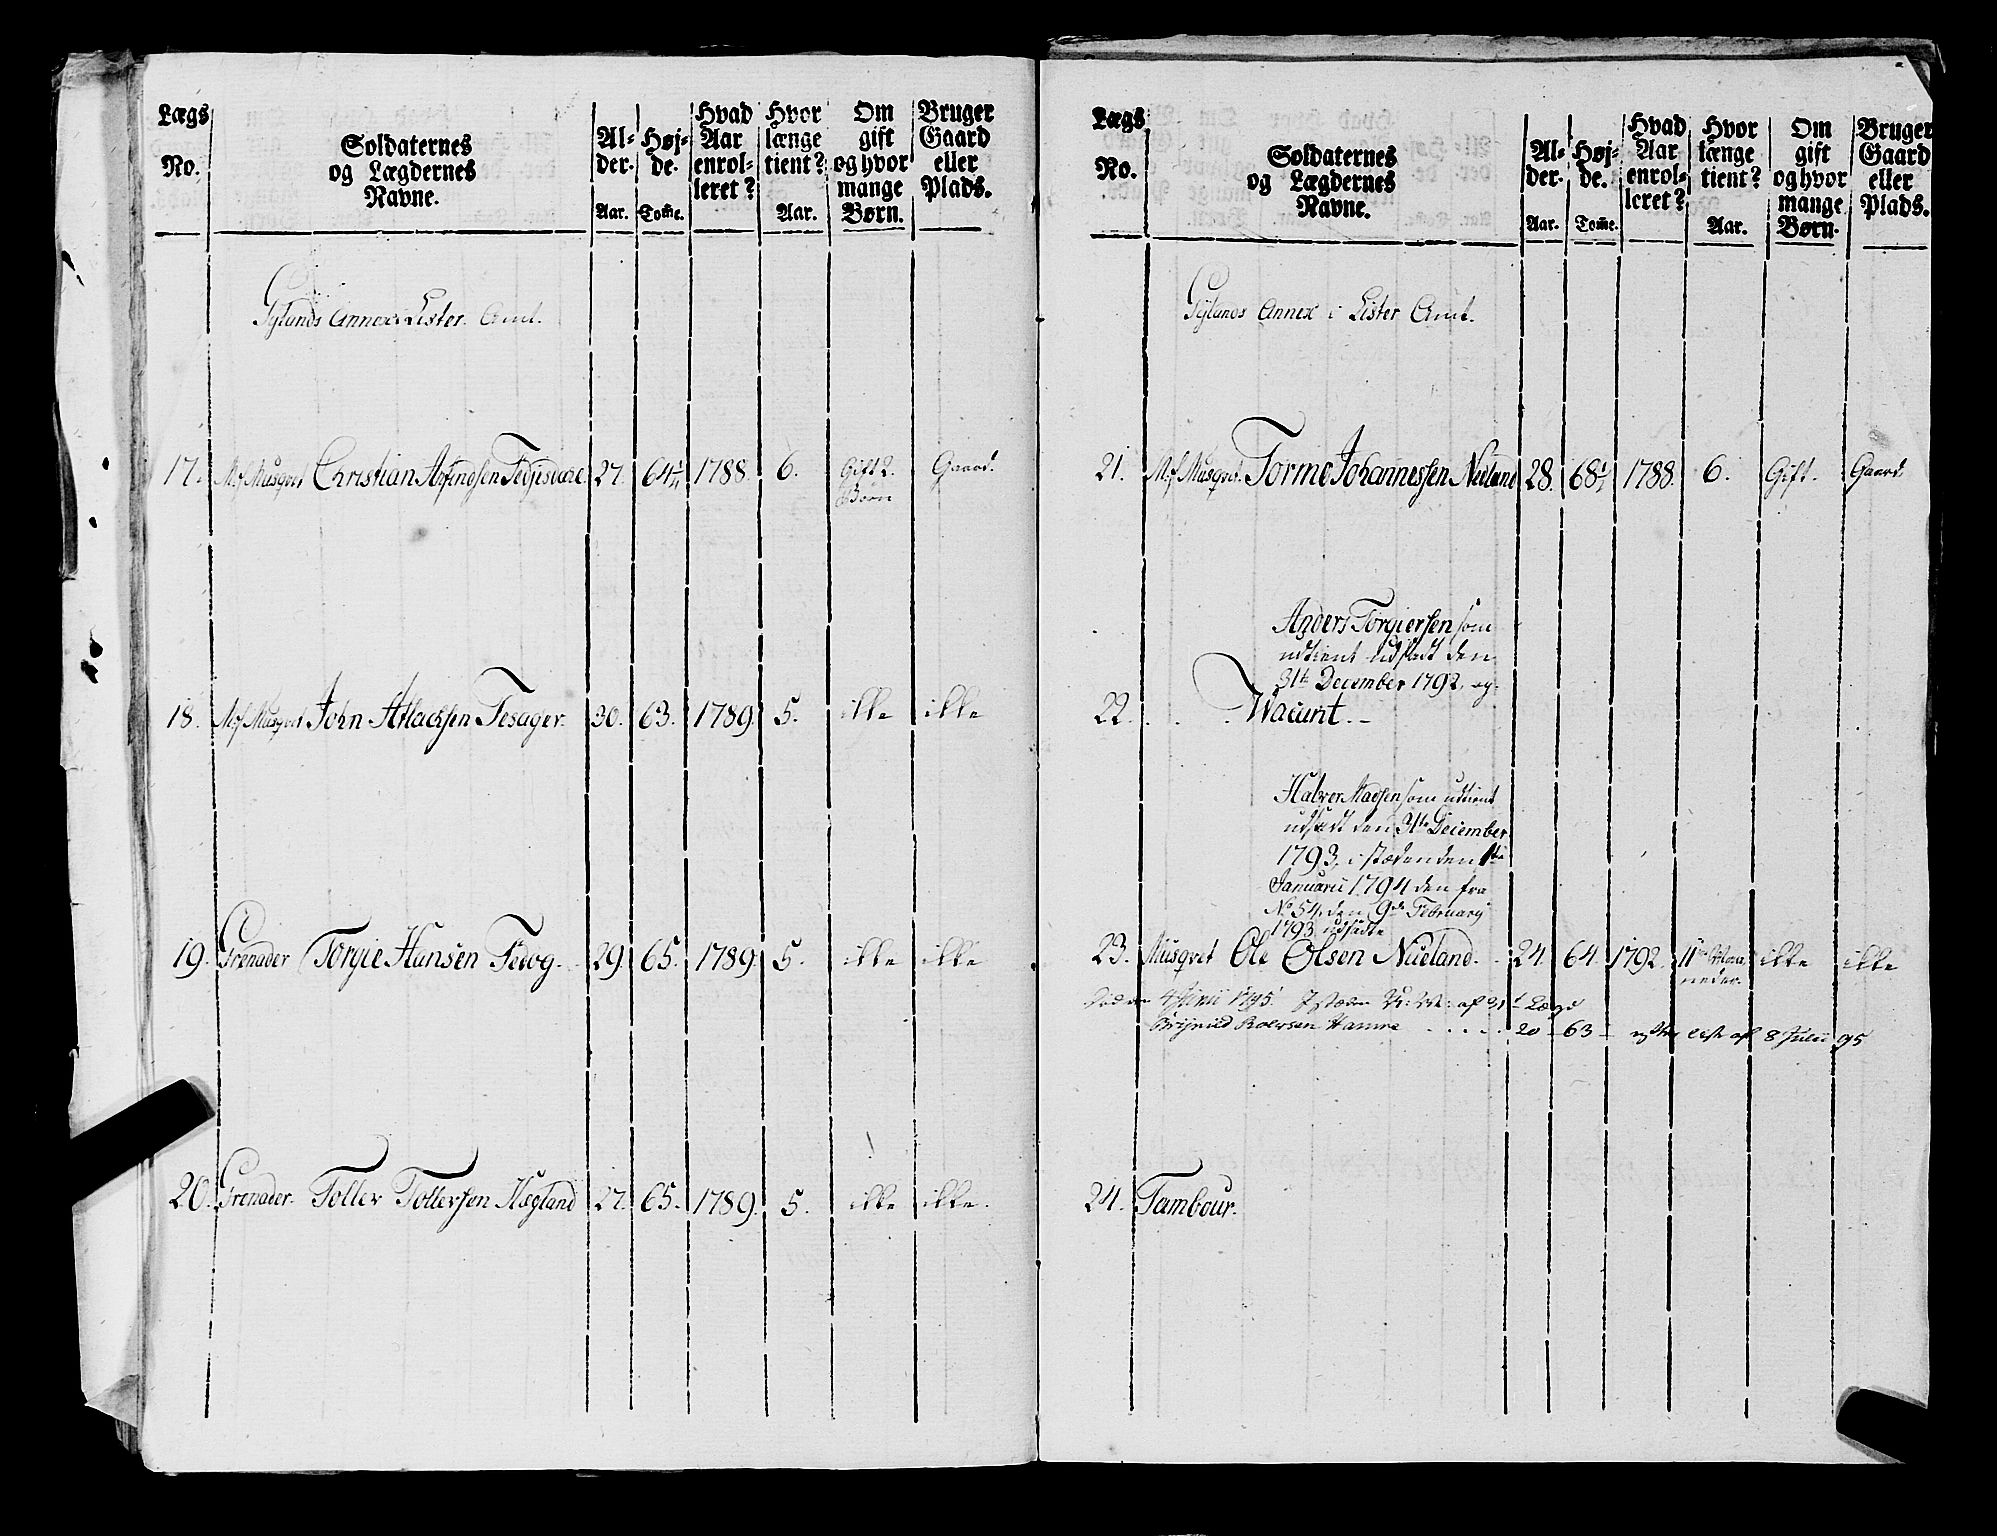 Lægs No. Soldaternes og Lægdernes Navne. Al-der. Aar. Høj-de. Tome. Hvad Aar enrol-leret? Hvor længe tient? Aar. Om gift og hvor mange Børn. Bruger Gaard eller Plads.
Gylands Annex i Lister Amt.
17. Nf Musqvet Christian Arfindsen 27. 64 1/4 1788. 6. Gift 2. Gaard.
Børn
18. Nf Musqvet John Atlachsen Fesager. 30. 63. 1789. 5. ikke ikke
19. Grenader Torgie Hansen Fedog. 29. 65. 1789. 5. ikke ikke
20. Grenader. Toller Tollersen Hægland 27. 65. 1789. 5. ikke ikke.
Lægs No. Soldaternes og Lægdernes Navne. Al-der. Aar. Høj-de. Tome. Hvad Aar enrol-leret? Hvor længe tient? Aar. Om gift og hvor mange Børn. Bruger Gaard eller Plads.
Gylands Annex i Lister Amt.
21. Nf Musqvet. Torme Johannessen Nedland 28. 68 1/2 1788. 6. Gift. Gaard
Anders Torgiersen som
udtient udsadt den
31te December 1792, og
22. Wacunt.
Halver Madsen som udtient
udsadt den 31te December
1793, i stæden den 1te
Januarii 1794 den fra
No 54, den 9de February
1793 udsadte
23. Musqvet Ole Olsen Nueland. 24. 64. 1792. 11 Maa ikke ikke
neder.
Død den 4 Junii 1795. I stæden af 31 Lægd
Roersen Hamre 20 - 63 - efter liste af 8 Julii 95
24. Tambour.